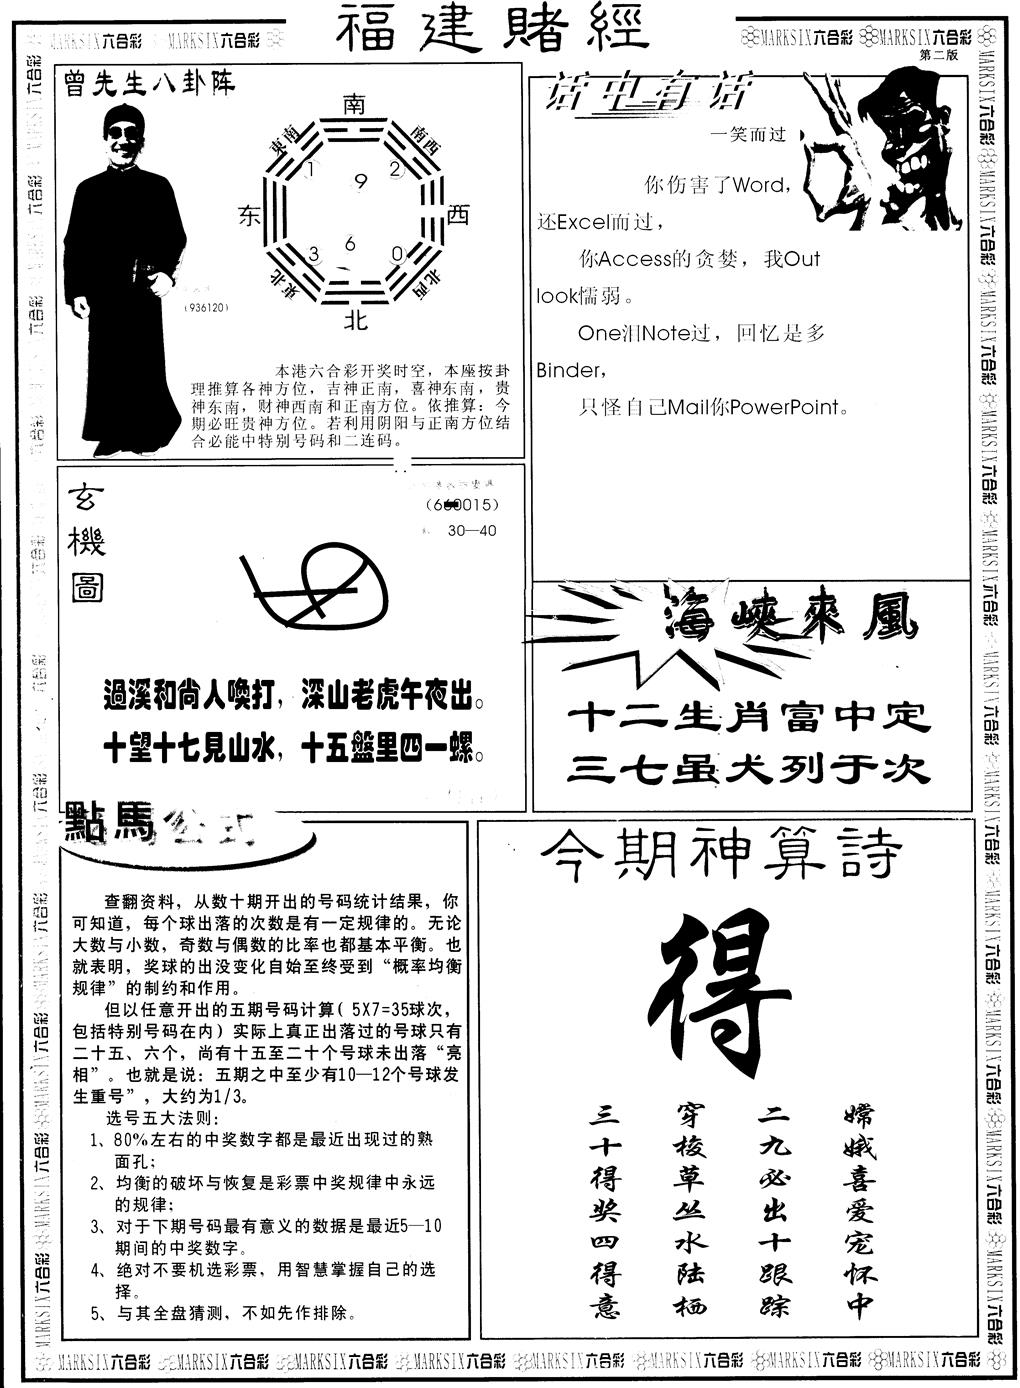 福建賭經
MARKSIX六合彩 MARKSIX六合彩
MARKSIX六合彩 MARKSIX六合彩
第二版
曾先生八卦阵
南
東南 南西
1 9 2
东 西
3 6 0
東北 北西
北
(936120)
本港六合彩开奖时空，本座按卦
理推算各神方位，吉神正南，喜神东南，贵
神东南，财神西南和正南方位。依推算：今
期必旺贵神方位。若利用阴阳与正南方位结
合必能中特别号码和二连码。
话中有话
一笑而过
你伤害了Word，
还Excel而过，
你Access的贪婪，我Out
look懦弱。
One泪Note过，回忆是多
Binder，
只怪自己Mail你PowerPoint。
玄機圖
30—40
過溪和尚人喚打，深山老虎午夜出。
十望十七見山水，十五盤里四一螺。
海峽來風
十二生肖富中定
三七虽犬列于次
點馬公式
查翻资料，从数十期开出的号码统计结果，你
可知道，每个球出落的次数是有一定规律的。无论
大数与小数，奇数与偶数的比率也都基本平衡。也
就表明，奖球的出没变化自始至终受到“概率均衡
规律”的制约和作用。
但以任意开出的五期号码计算( 5X7=35球次，
包括特别号码在内) 实际上真正出落过的号球只有
二十五、六个，尚有十五至二十个号球未出落“亮
相”。也就是说：五期之中至少有10—12个号球发
生重号”，大约为1/3。
选号五大法则：
1、80%左右的中奖数字都是最近出现过的熟
面孔；
2、均衡的破坏与恢复是彩票中奖规律中永远
的规律；
3、对于下期号码最有意义的数据是最近5—10
期间的中奖数字。
4、绝对不要机选彩票，用智慧掌握自己的选
择。
5、与其全盘猜测，不如先作排除。
今期神算詩
得
嫦娥喜爱宠怀中
二九必出十跟踪
穿梭草丛水陆栖
三十得奖四得意
MARKSIX六合彩 MARKSIX六合彩 MARKSIX六合彩 MARKSIX六合彩 MARKSIX六合彩 MARKSIX六合彩 MARKSIX六合彩 MARKSIX六合彩